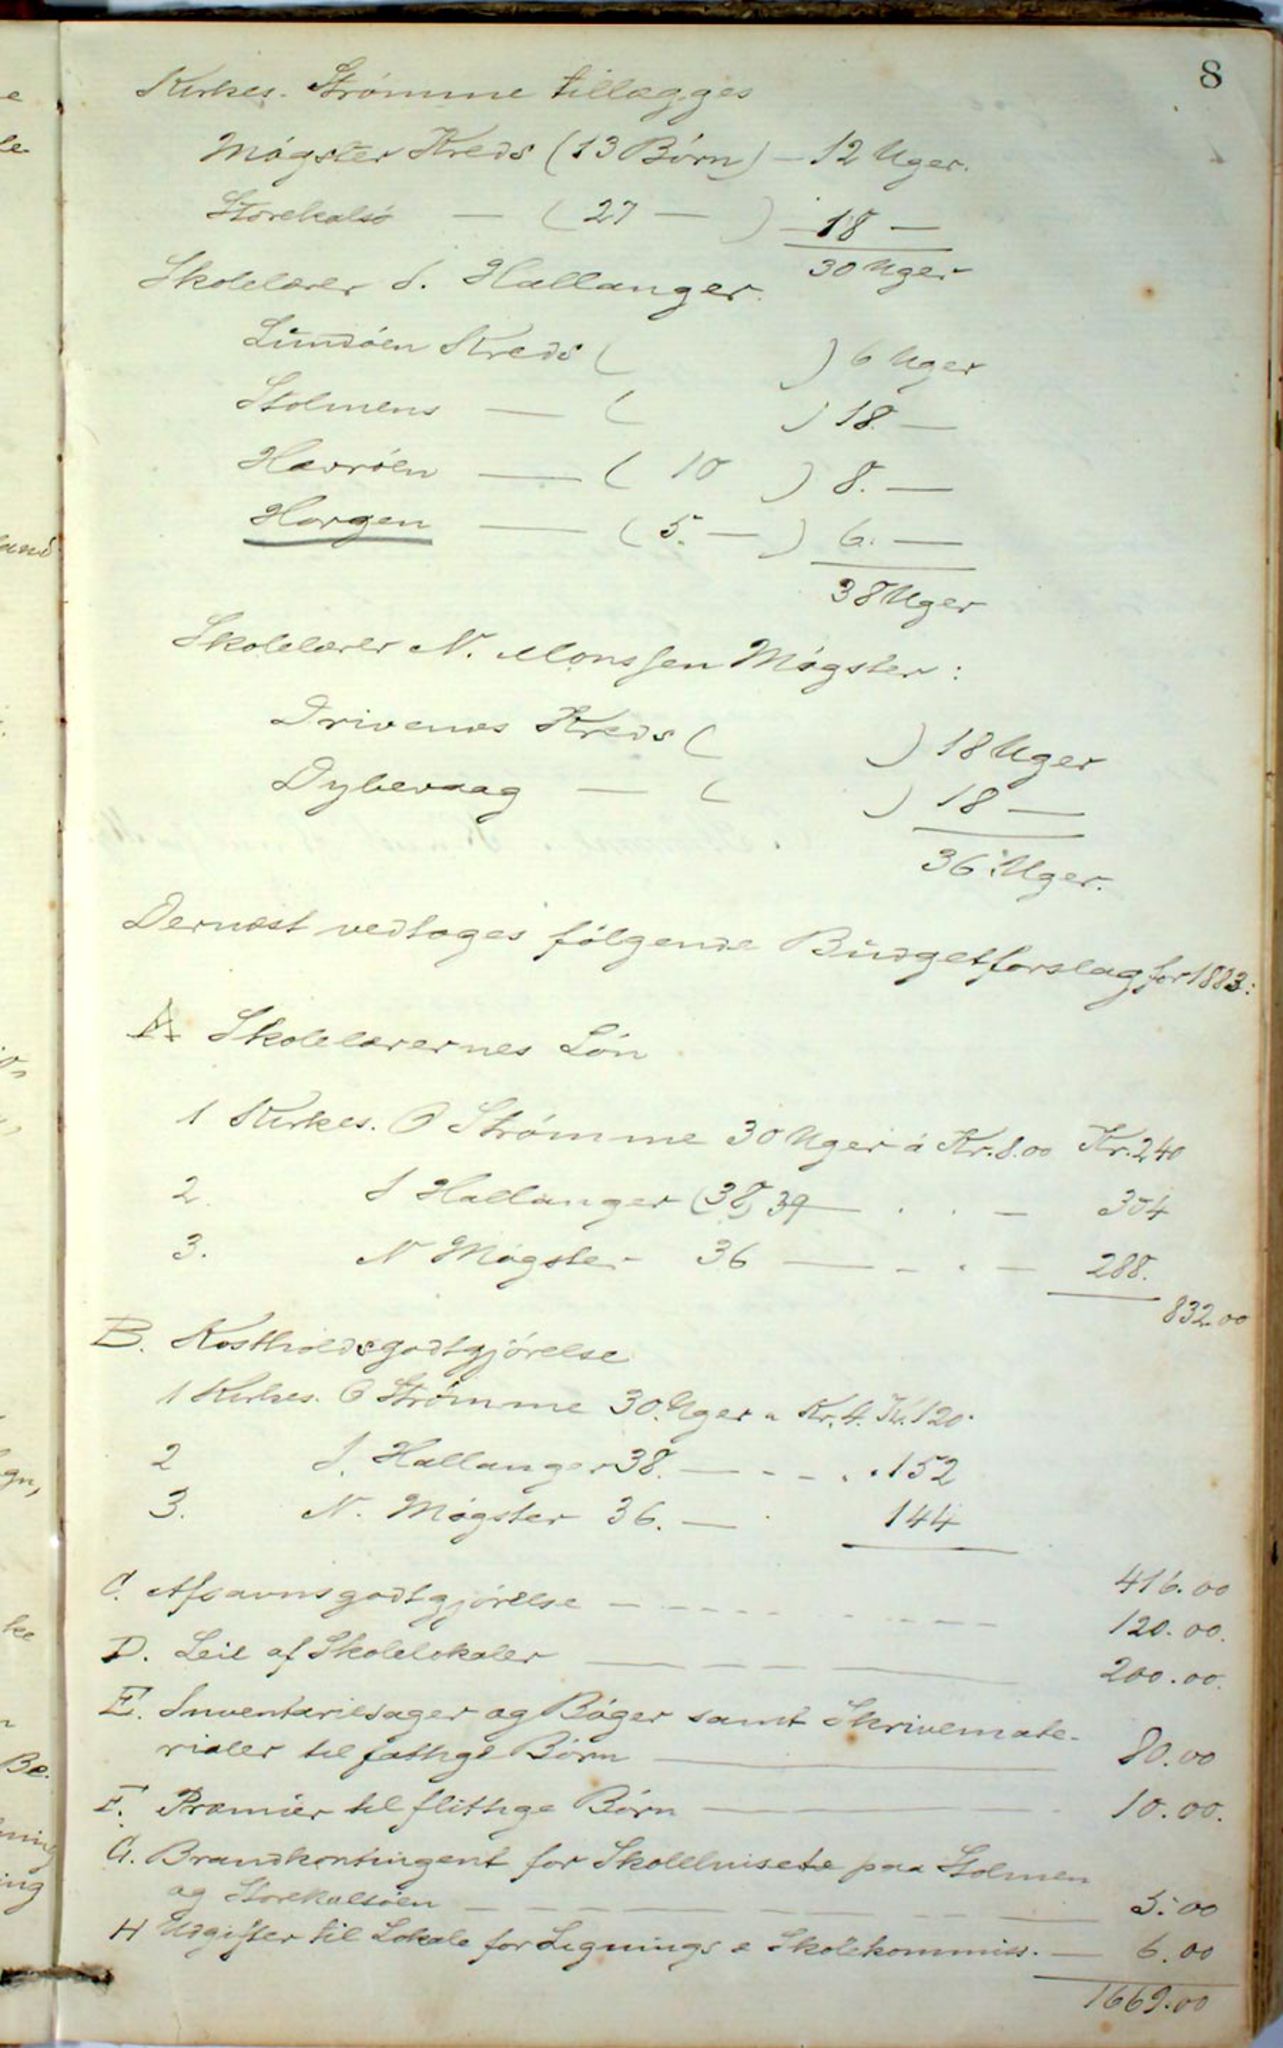 8
Kirkes. Strømme tillægges
Møgster Kreds (13 Børn) — 12 Uger.
Storekalsø — (27 — ) — 18 —
30 Uger
Skolelærer S. Hallanger.
Lundøen Kreds ( ) 6 Uger
Stolmens — ( ) 18. —
Havrøen — ( 10 ) 8. —
Horgen — ( 5. — ) 6. —
38 Uger
Skolelærer N. Monssen Møgster :
Drivenæs Kreds ( ) 18 Uger
Dybevaag — ( ) 18 —
36 Uger.
Dernæst vedtoges følgende Budgetforslag for 1883:
A Skolelærernes Løn
1 Kirkes. O Strømme 30 Uger á Kr. 8.00 Kr. 240
2. S Hallanger (38) 39 — . . — 304
3. N Møgster 36 — - . — 288.
832.00
B. Kostholdsgodtgjørelse
1 Kirkes. O Strømme 30. Uger a Kr. 4. Kr. 120.
2 S. Hallanger 38. — - - . . 152
3. N. Møgster 36. — . 144
416.00
C. Afsavnsgodtgjørelse — 120.00.
D. Leie af Skolelokaler — 200.00.
E. Inventariesager og Bøger samt Skrivemate-
rialer til fattige Børn — 80.00
F. Præmier til flittige Børn — 10.00.
G. Brandkontingent for Skolehusete paa Stolmen
og Storekalsøen — 5.00
H Udgifter til Lokale for Lignings & Skolekommiss. — 6.00
1669.00
land
ke
Be.
ning
ing
gn,